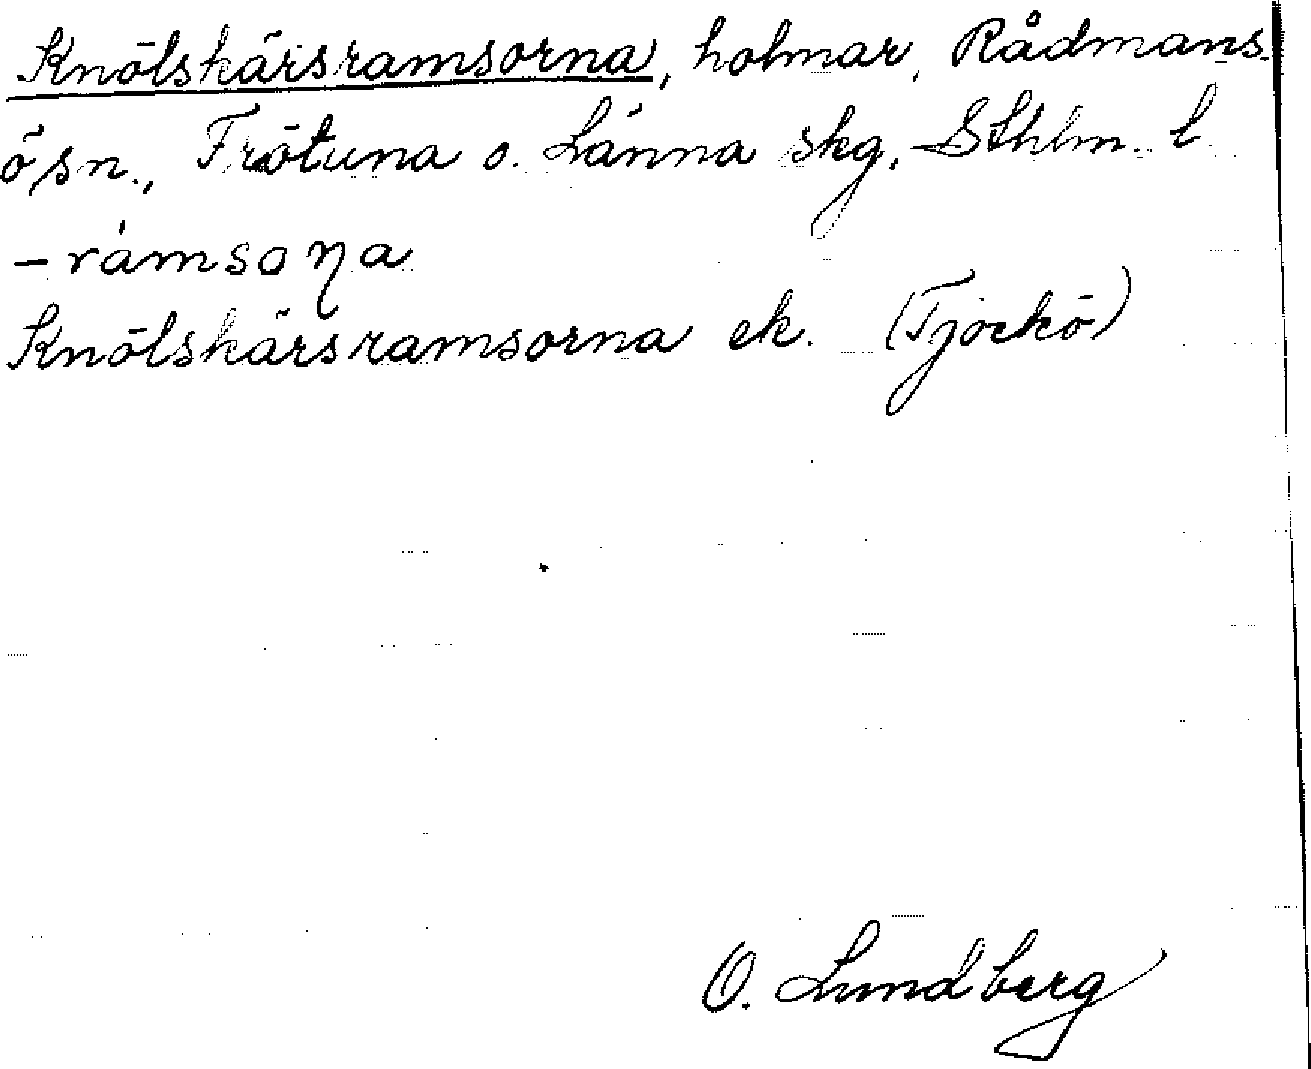 Knölskärsramsorna, holmar, Rådmans-
ö sn., Frötuna o. Länna skg, Sthlm. l
- ràmsoɳa
Knölskärsramsorna ek. (Tjockö)
O. Lundberg